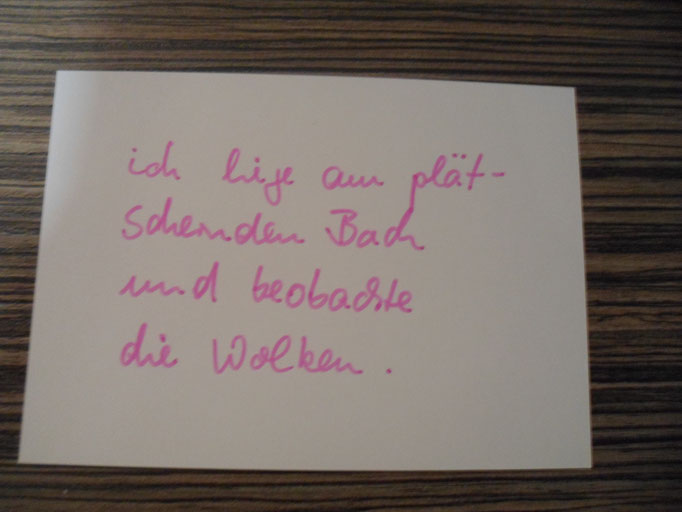 ich liege am plät-
schernden Bach
und beobachte
die Wolken.